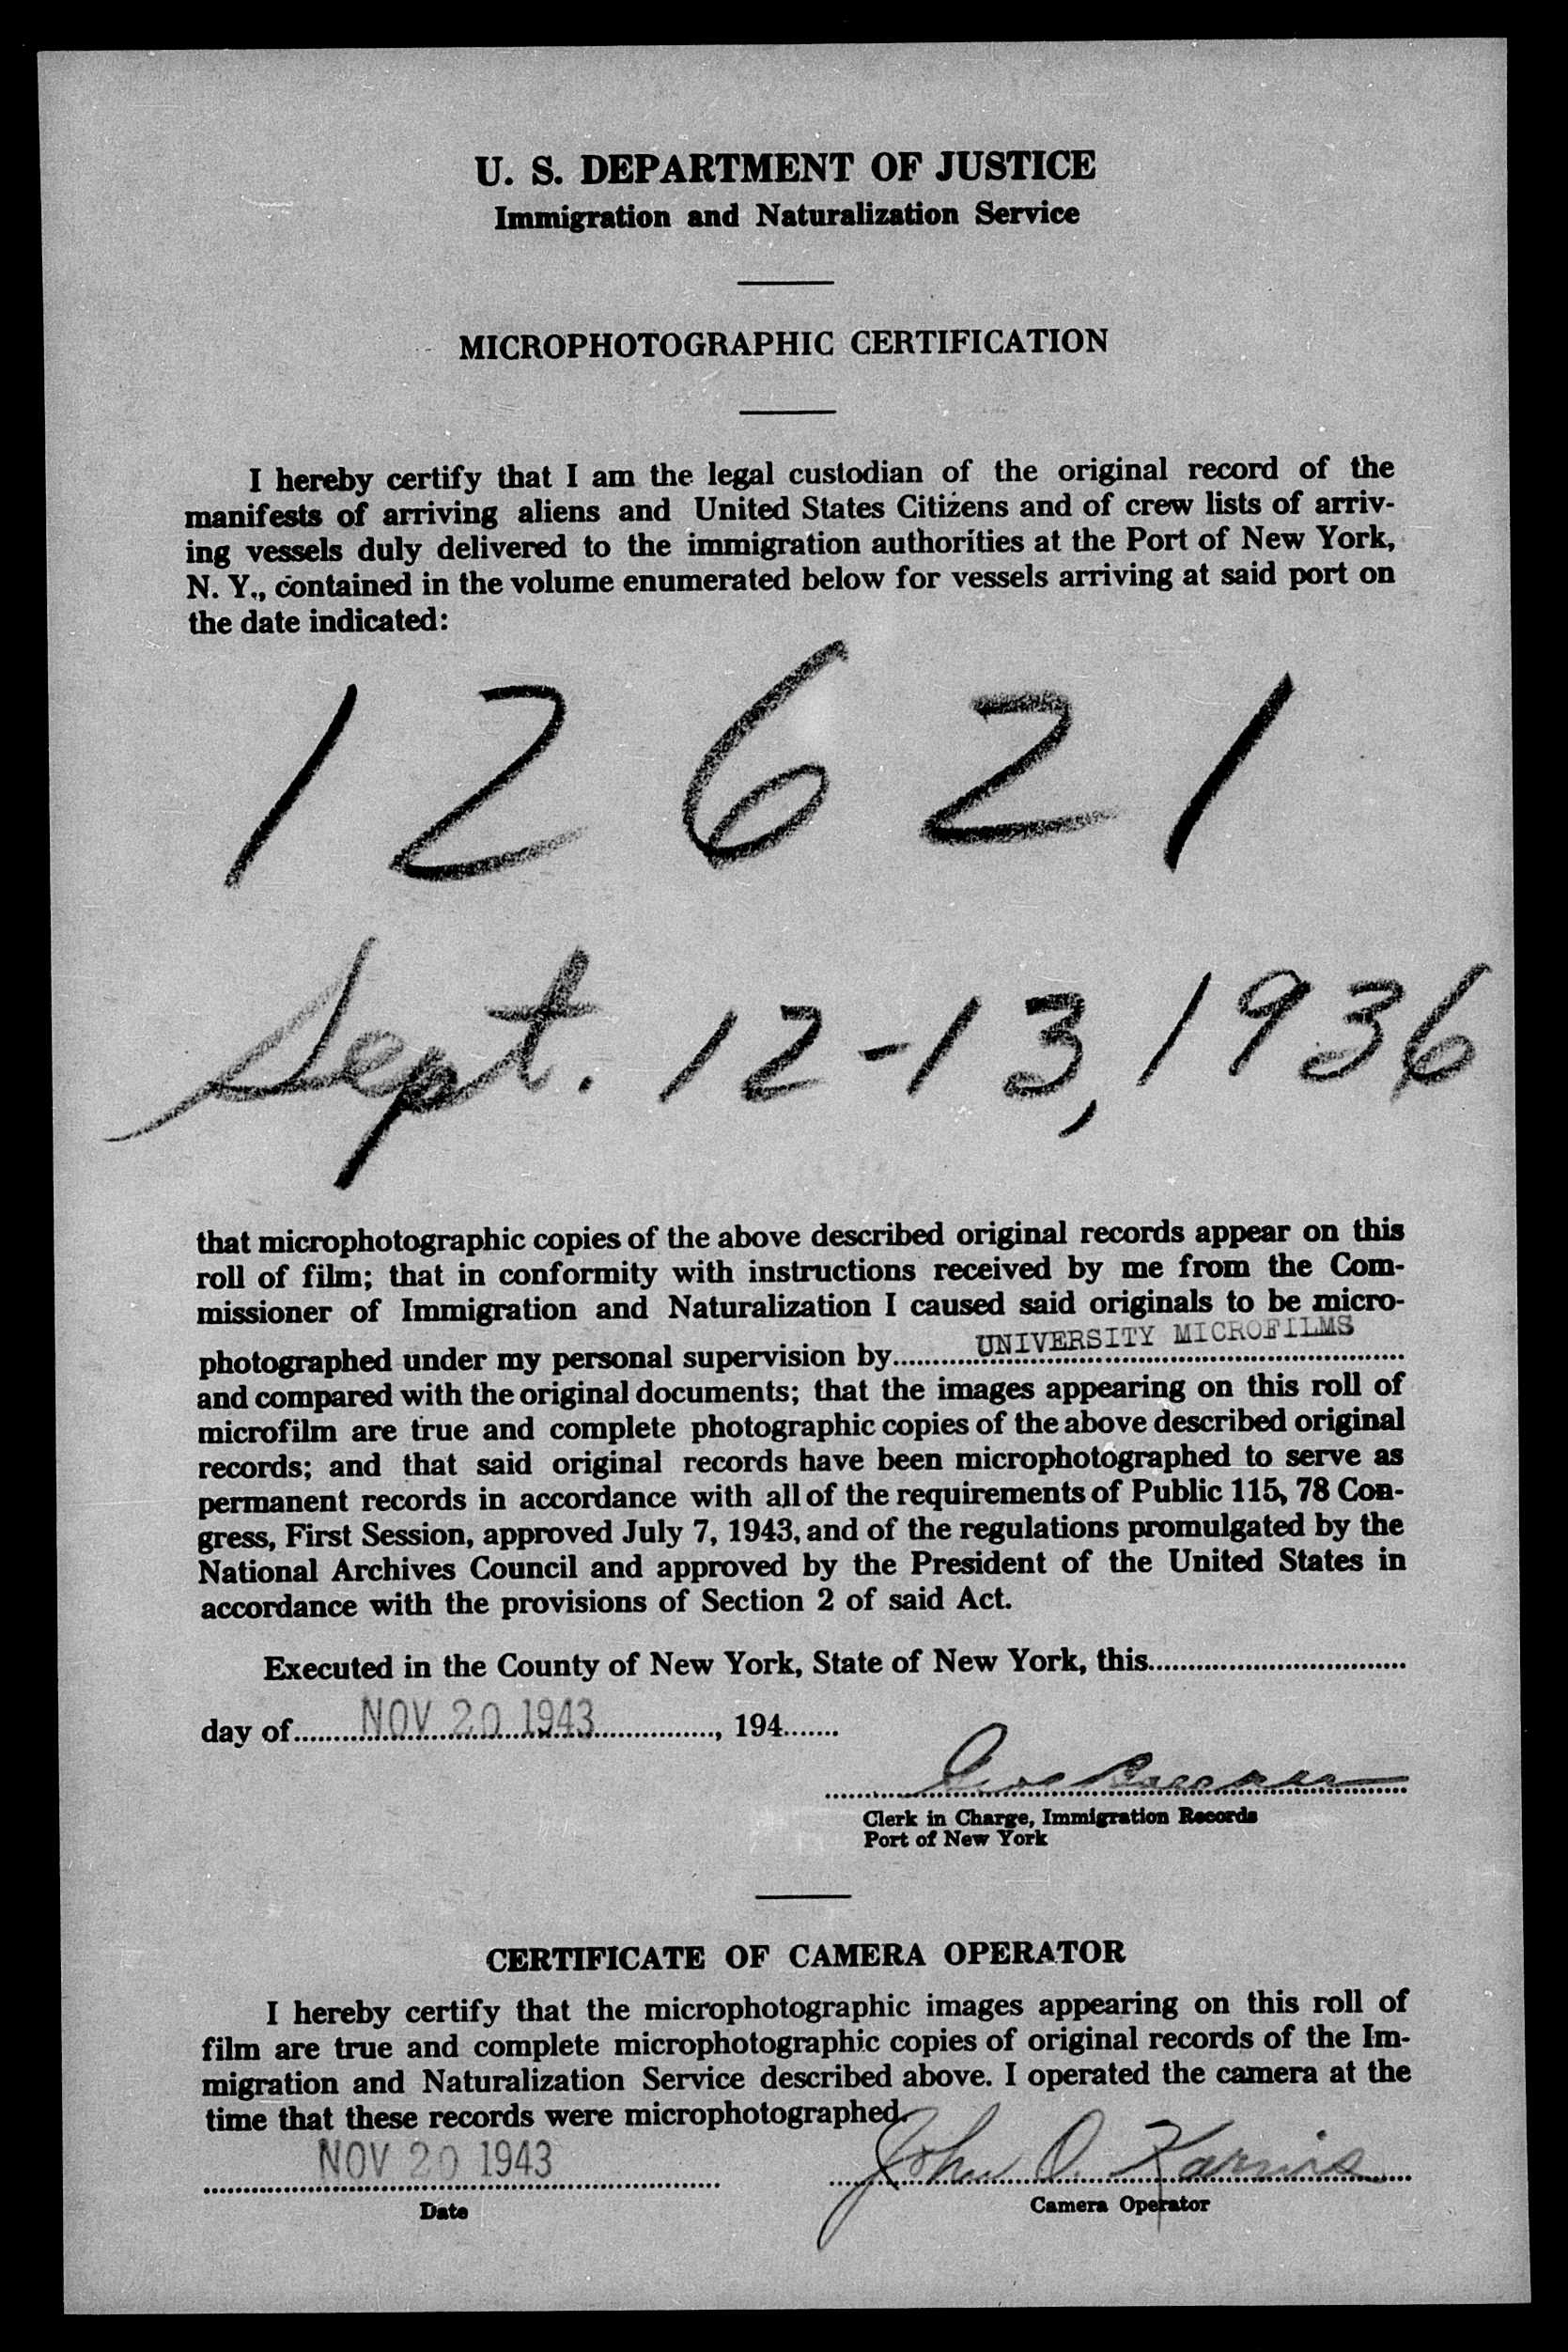 U. S. DEPARTMENT OF JUSTICE
Immigration and Naturalization Service
MICROPHOTOGRAPHIC CERTIFICATION
I hereby certify that I am the legal custodian of the original record of the
manifests of arriving aliens and United States Citizens and of crew lists of arriv-
ing vessels duly delivered to the immigration authorities at the Port of New York,
N. Y., contained in the volume enumerated below for vessels arriving at said port on
the date indicated:
12621
Sept. 12-13, 1936
that microphotographic copies of the above described original records appear on this
roll of film; that in conformity with instructions received by me from the Com-
missioner of Immigration and Naturalization I caused said originals to be micro-
photographed under my personal supervision by UNIVERSITY MICROFILMS
and compared with the original documents; that the images appearing on this roll of
microfilm are true and complete photographic copies of the above described original
records; and that said original records have been microphotographed to serve as
permanent records in accordance with all of the requirements of Public 115, 78 Con-
gress, First Session, approved July 7, 1943, and of the regulations promulgated by the
National Archives Council and approved by the President of the United States in
accordance with the provisions of Section 2 of said Act.
Executed in the County of New York, State of New York, this
day of NOV 20 1943, 194
Clerk in Charge, Immigration Records
Port of New York
CERTIFICATE OF CAMERA OPERATOR
I hereby certify that the microphotographic images appearing on this roll of
film are true and complete microphotographic copies of original records of the Im-
migration and Naturalization Service described above. I operated the camera at the
time that these records were microphotographed.
NOV 20 1943 John O.
Date Camera Operator